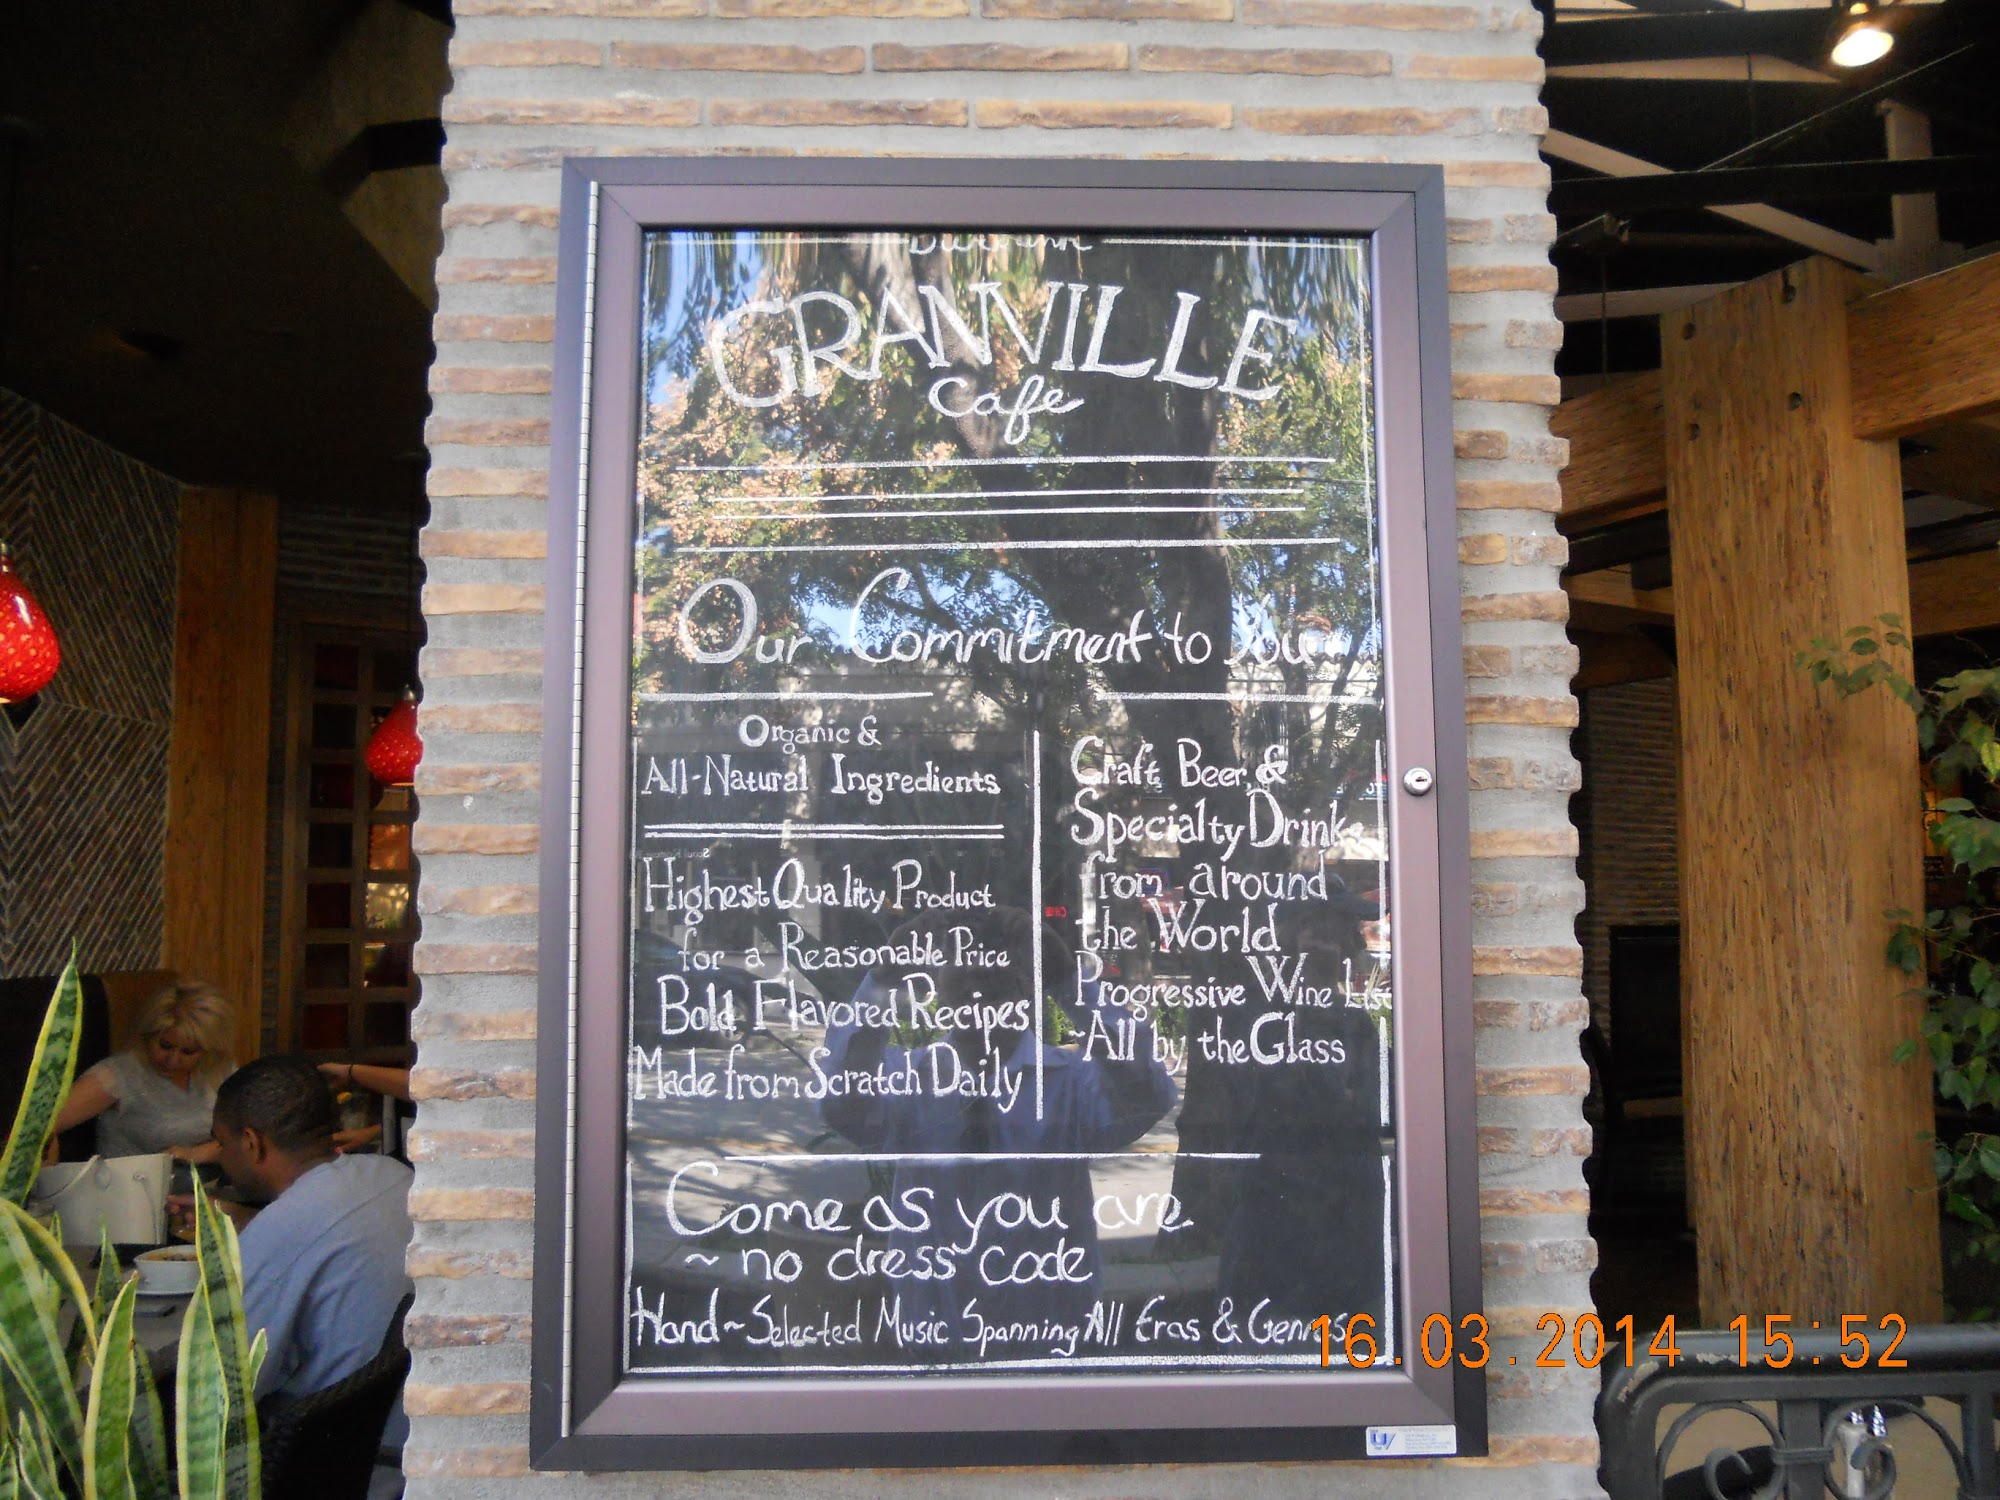 Burbank
GRANVILLE
Cafe
Our Commitment to You
Organic &
All-Natural Ingredients
Highest Quality Product
for a Reasonable Price
Bold Flavored Recipes
Made from Scratch Daily
Craft Beer, &
Specialty Drinks
from around
the World
Progressive Wine List
~All by the Glass
Come as you are
~ no dress code
Hand~Selected Music Spanning All Eras & Genres
16.03.2014 15:52